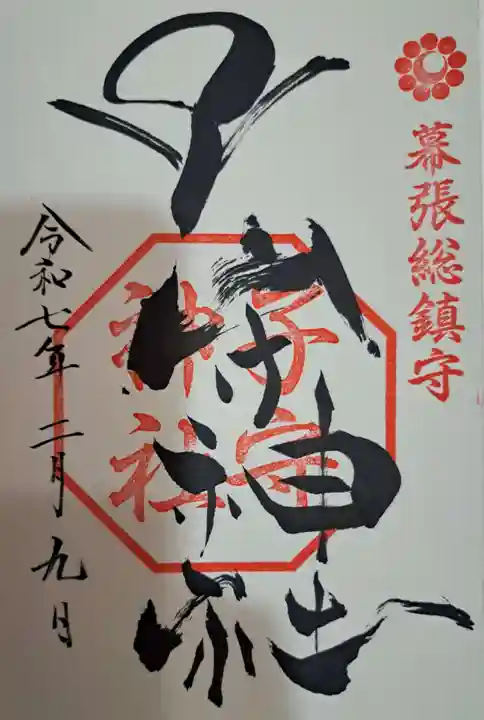 幕張総鎮守
子守神社
子守
神社
令和七年二月九日